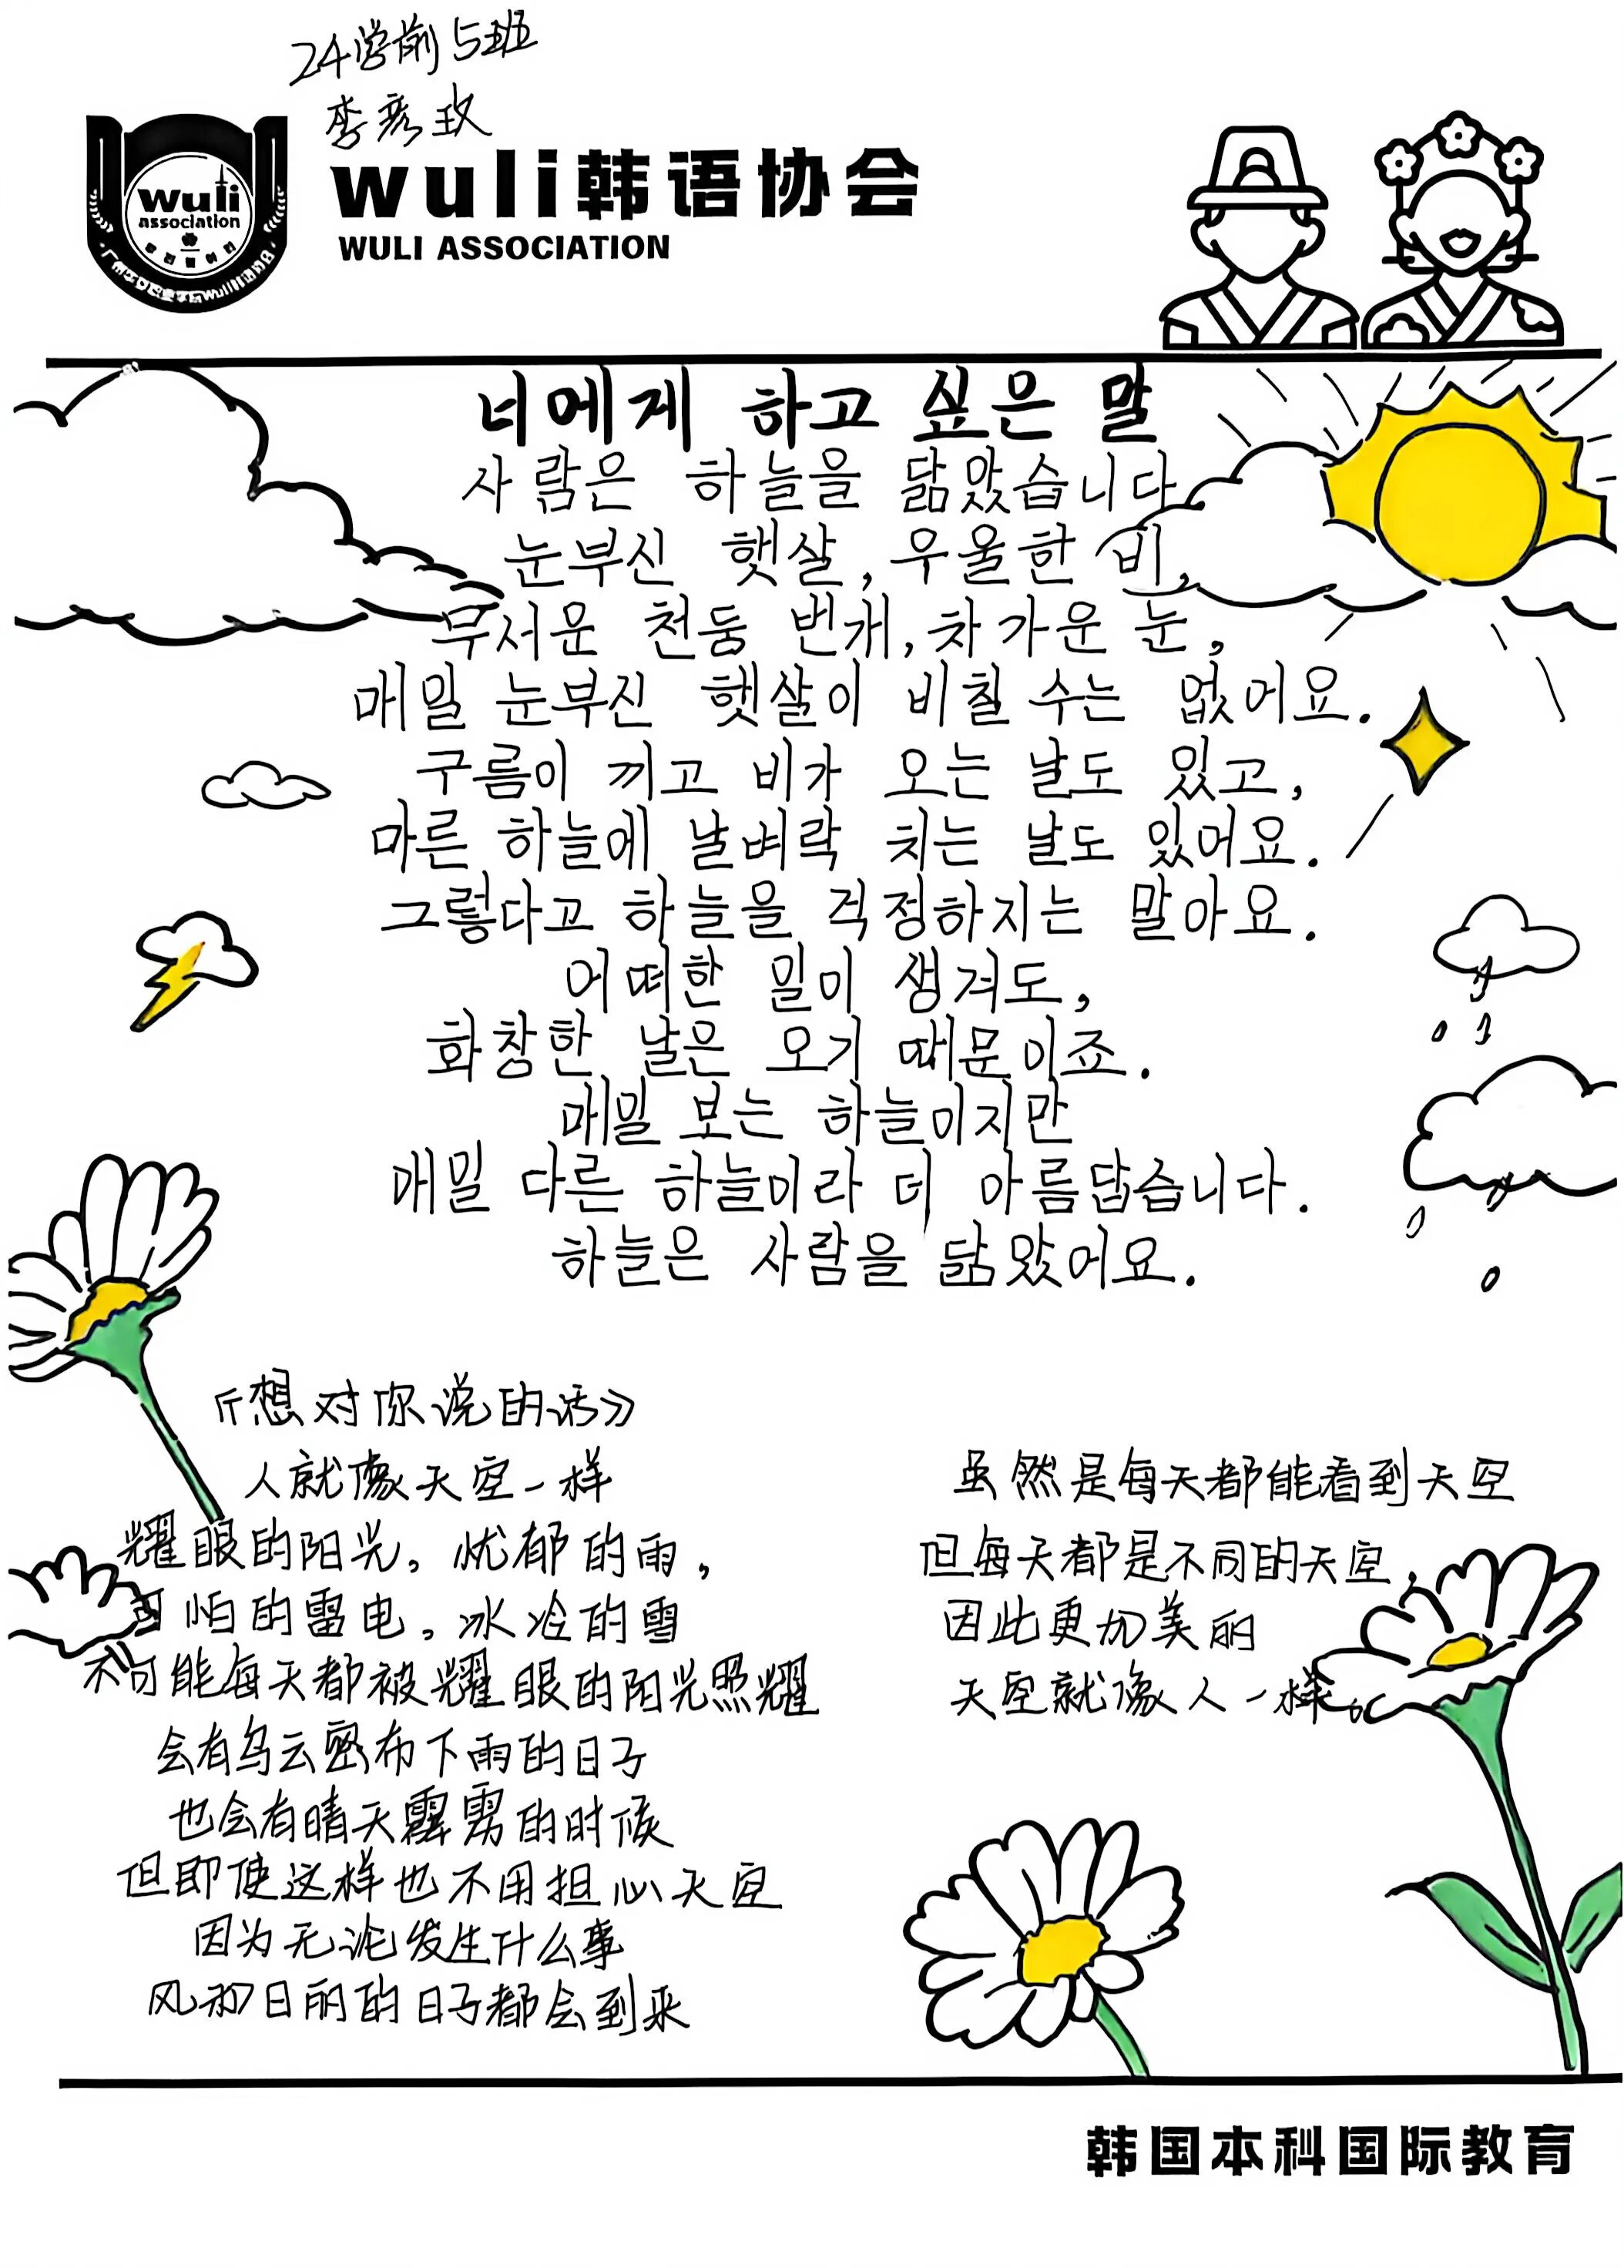 24学前5班
李彦玫
wuli
association
wuli韩语协会
WULI ASSOCIATION
너에게 하고 싶은 말
사람은 하늘을 닮았습니다
눈부신 햇살, 우울한 비,
무서운 천둥 번개, 차가운 눈,
매일 눈부신 햇살이 비칠 수는 없어요.
구름이 끼고 비가 오는 날도 있고,
마른 하늘에 날벼락 치는 날도 있어요.
그렇다고 하늘을 걱정하지는 말아요.
어떠한 일이 생겨도,
화창한 날은 오기 때문이죠.
매일 보는 하늘이지만
매일 다른 하늘이라 더 아름답습니다.
하늘은 사람을 닮았어요.
《想对你说的话》
人就像天空一样
耀眼的阳光。忧郁的雨,
可怕的雷电。冰冷的雪
不可能每天都被耀眼的阳光照耀
会有乌云密布下雨的日子
也会有晴天霹雳的时候
但即使这样也不用担心天空
因为无论发生什么事
风和日丽的日子都会到来
虽然是每天都能看到天空
但每天都是不同的天空,
因此更加美丽
天空就像人一样。
韩国本科国际教育